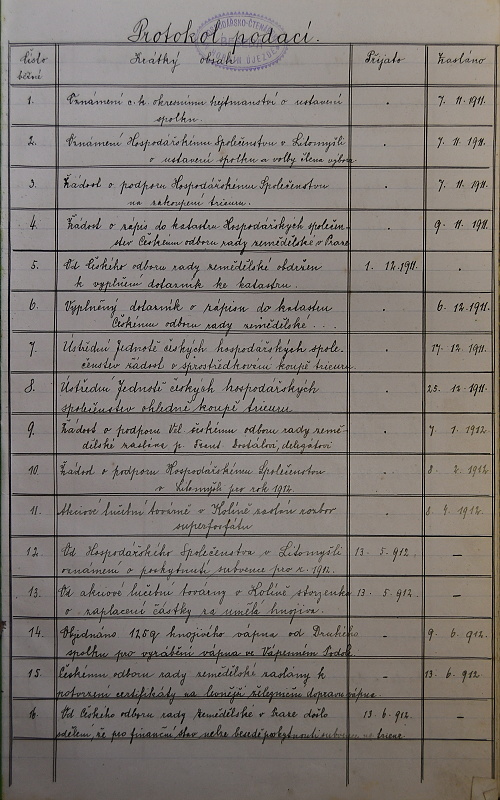 Protokol podací.
Číslo běžné Krátký obsah Přijato Zasláno
1. Oznámení c. k. okresnímu hejtmanství o ustavení . 7. 11. 1911.
spolku.
2. Oznámení Hospodářskému Společenstvu v Litomyšli . 7. 11. 1911.
o ustavení spolku a volby člena výboru
3. Žádost o podporu Hospodářskému Společenstvu . 7. 11. 1911.
na zakoupení trieuru.
4. Žádost o zápis do katastru Hospodářských společen- . 9. 11. 1911.
stev Českému odboru rady zemědělské v Praze
5. Od Českého odboru rady zemědělské obdržen 1. 12. 1911. .
k vyplnění dotazník ke katastru.
6. Vyplněný dotazník o zápisu do katastru . 6. 12. 1911.
Českému odboru rady zemědělské . . .
7. Ústřední Jednotě českých hospodářských spole- . 17. 12. 1911.
čenstev žádost o sprostředkování koupě trieuru
8. Ústřední Jednotě českých hospodářských . 25. 12. 1911.
společenstev ohledně koupě trieuru
9. Žádost o podporu Vel. českému odboru rady země- . 7. 1. 1912.
dělské zaslána p. Frant. Dostálovi, delegátovi
10. Žádost o podporu Hospodářskému Společenstvu . 8. 2. 1912.
v Litomyšli pro rok 1912.
11. Akciové lučební továrně v Kolíně zaslán rozbor . 8. 4. 1912.
superfosfátu
12. Od Hospodářského Společenstva v Litomyšli 13. 5. 912. —
oznámení o poskytnutí subvence pro r. 1912.
13. Od akciové lučební továrny v Kolíně stvrzenka 13. 5. 912. —
o zaplacení částky za umělá hnojiva.
14. Objednáno 125 q hnojivého vápna od Družického . 9. 6. 912.
spolku pro vyrábění vápna ve Vápenném Podole
15. Českému odboru rady zemědělské zaslány k . 13. 6. 912.
potvrzení certifikáty na levnější železniční dopravu vápna
16. Od Českého odboru rady zemědělské v Praze došlo 13. 6. 912. —
sdělení, že pro finanční stav nelze poskytnouti subvenci